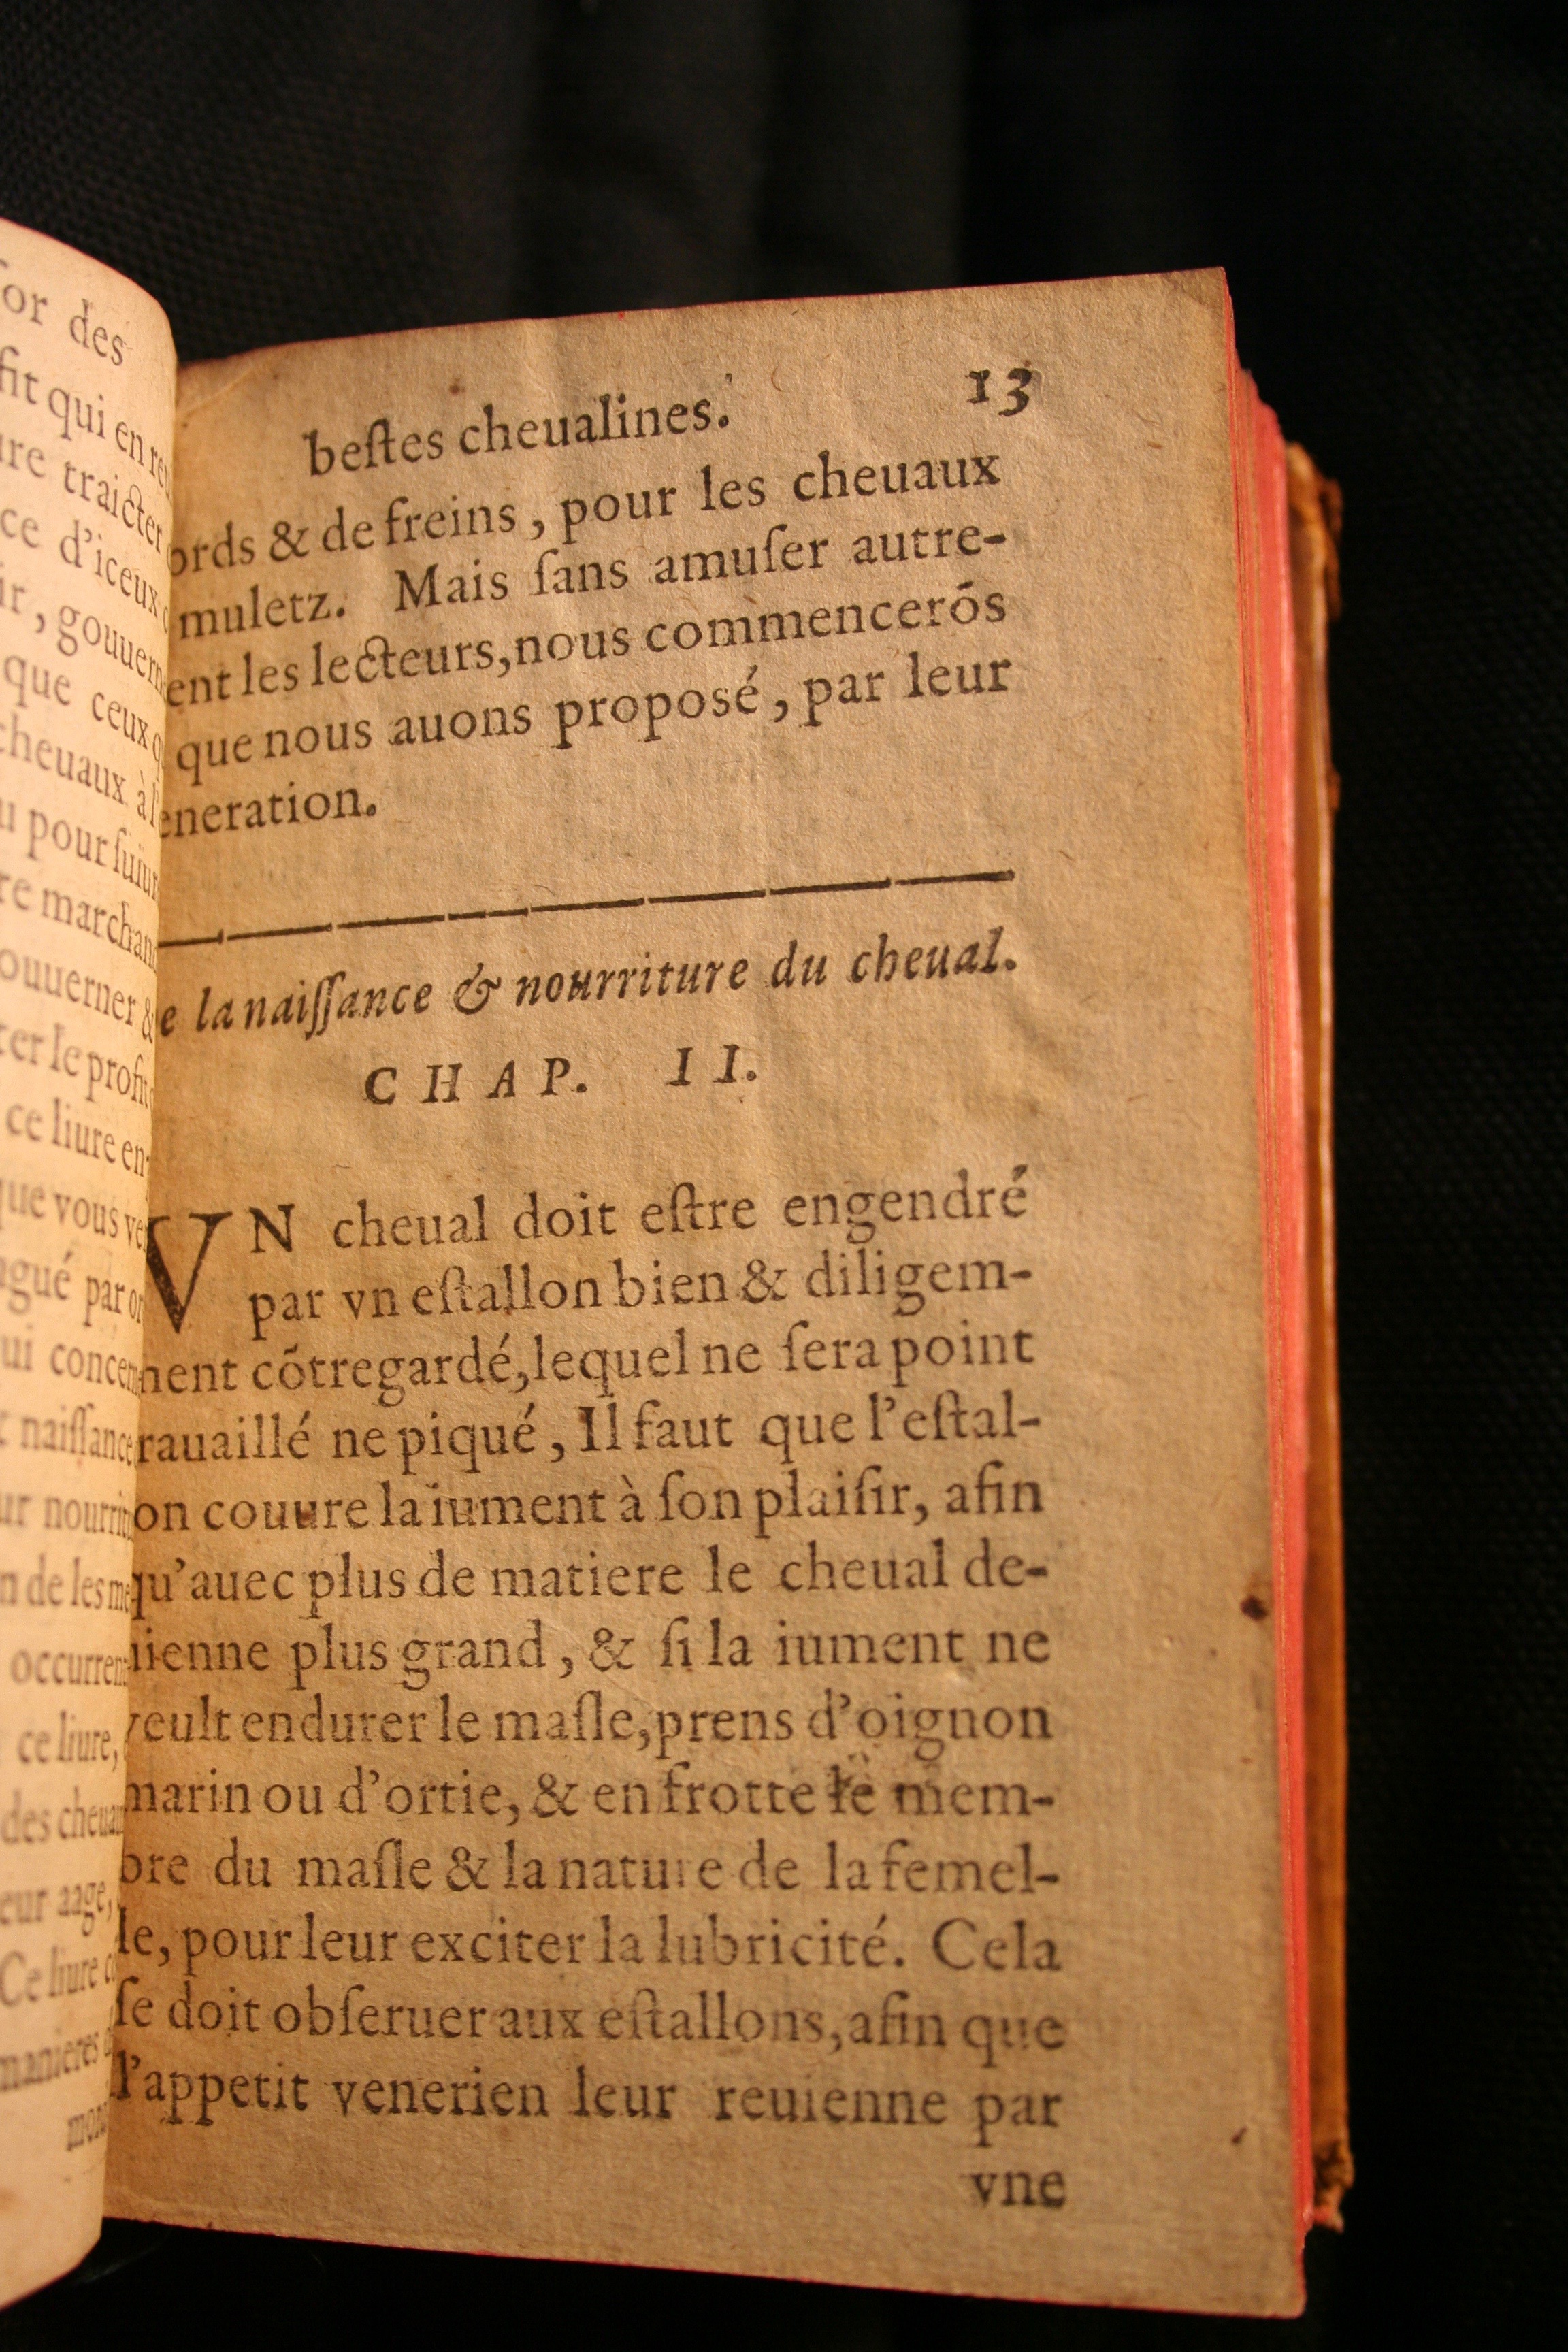 or des
fit qui en
traicter
ce d'iceux
ir, gouuern
que ceux
cheuaux
pour suiur
re marchan
ouuerner &
ter le profit
ce liure en
que vous
par
ui concer
naissance
ur nourrit
n de les
occurren
ce liure,
des cheua
eur aage,
Ce liure
manieres
bestes cheualines. 13
ords & de freins, pour les cheuaux
muletz. Mais sans amuser autre-
ent les lecteurs, nous commencerõs
que nous auons proposé, par leur
eneration.
e la naissance & nourriture du cheual.
CHAP. II.
VN cheual doit estre engendré
par vn estallon bien & diligem-
ment cõtregardé, lequel ne sera point
rauaillé ne piqué, Il faut que l'estal-
on couure la iument à son plaisir, afin
qu'auec plus de matiere le cheual de-
uienne plus grand, & si la iument ne
veult endurer le masle, prens d'oignon
marin ou d'ortie, & en frotte le mem-
bre du masle & la nature de la femel-
le, pour leur exciter la lubricité. Cela
se doit obseruer aux estallons, afin que
l'appetit venerien leur reuienne par
vne